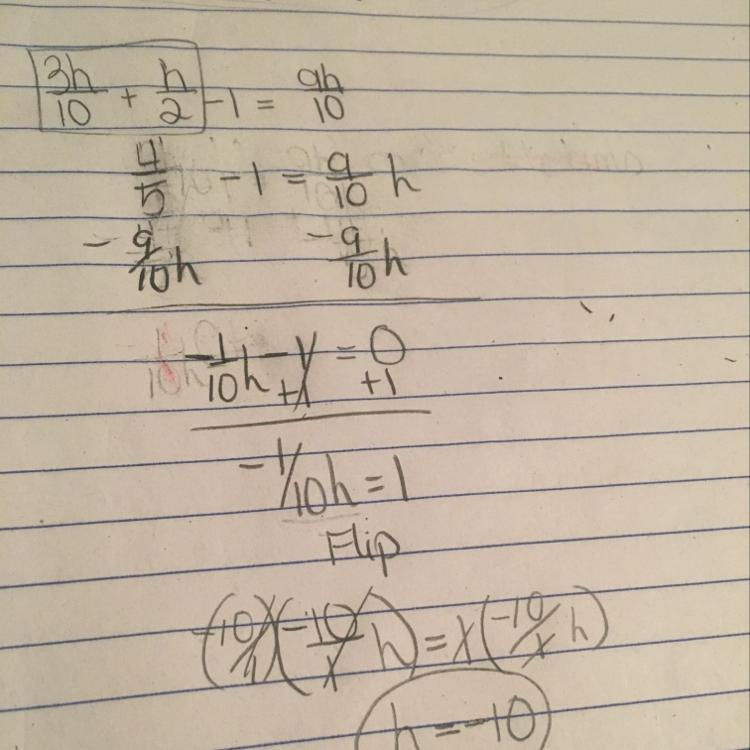 3h/10 + h/2 -1 = 9h/10
4/5 -1 = 9/10 h
-9/10h -9/10h
-1/10h -1 = 0
+1 +1
-1/10h = 1
Flip
(-10/1)(-10/1 h) = 1(-10/1 h)
h = -10